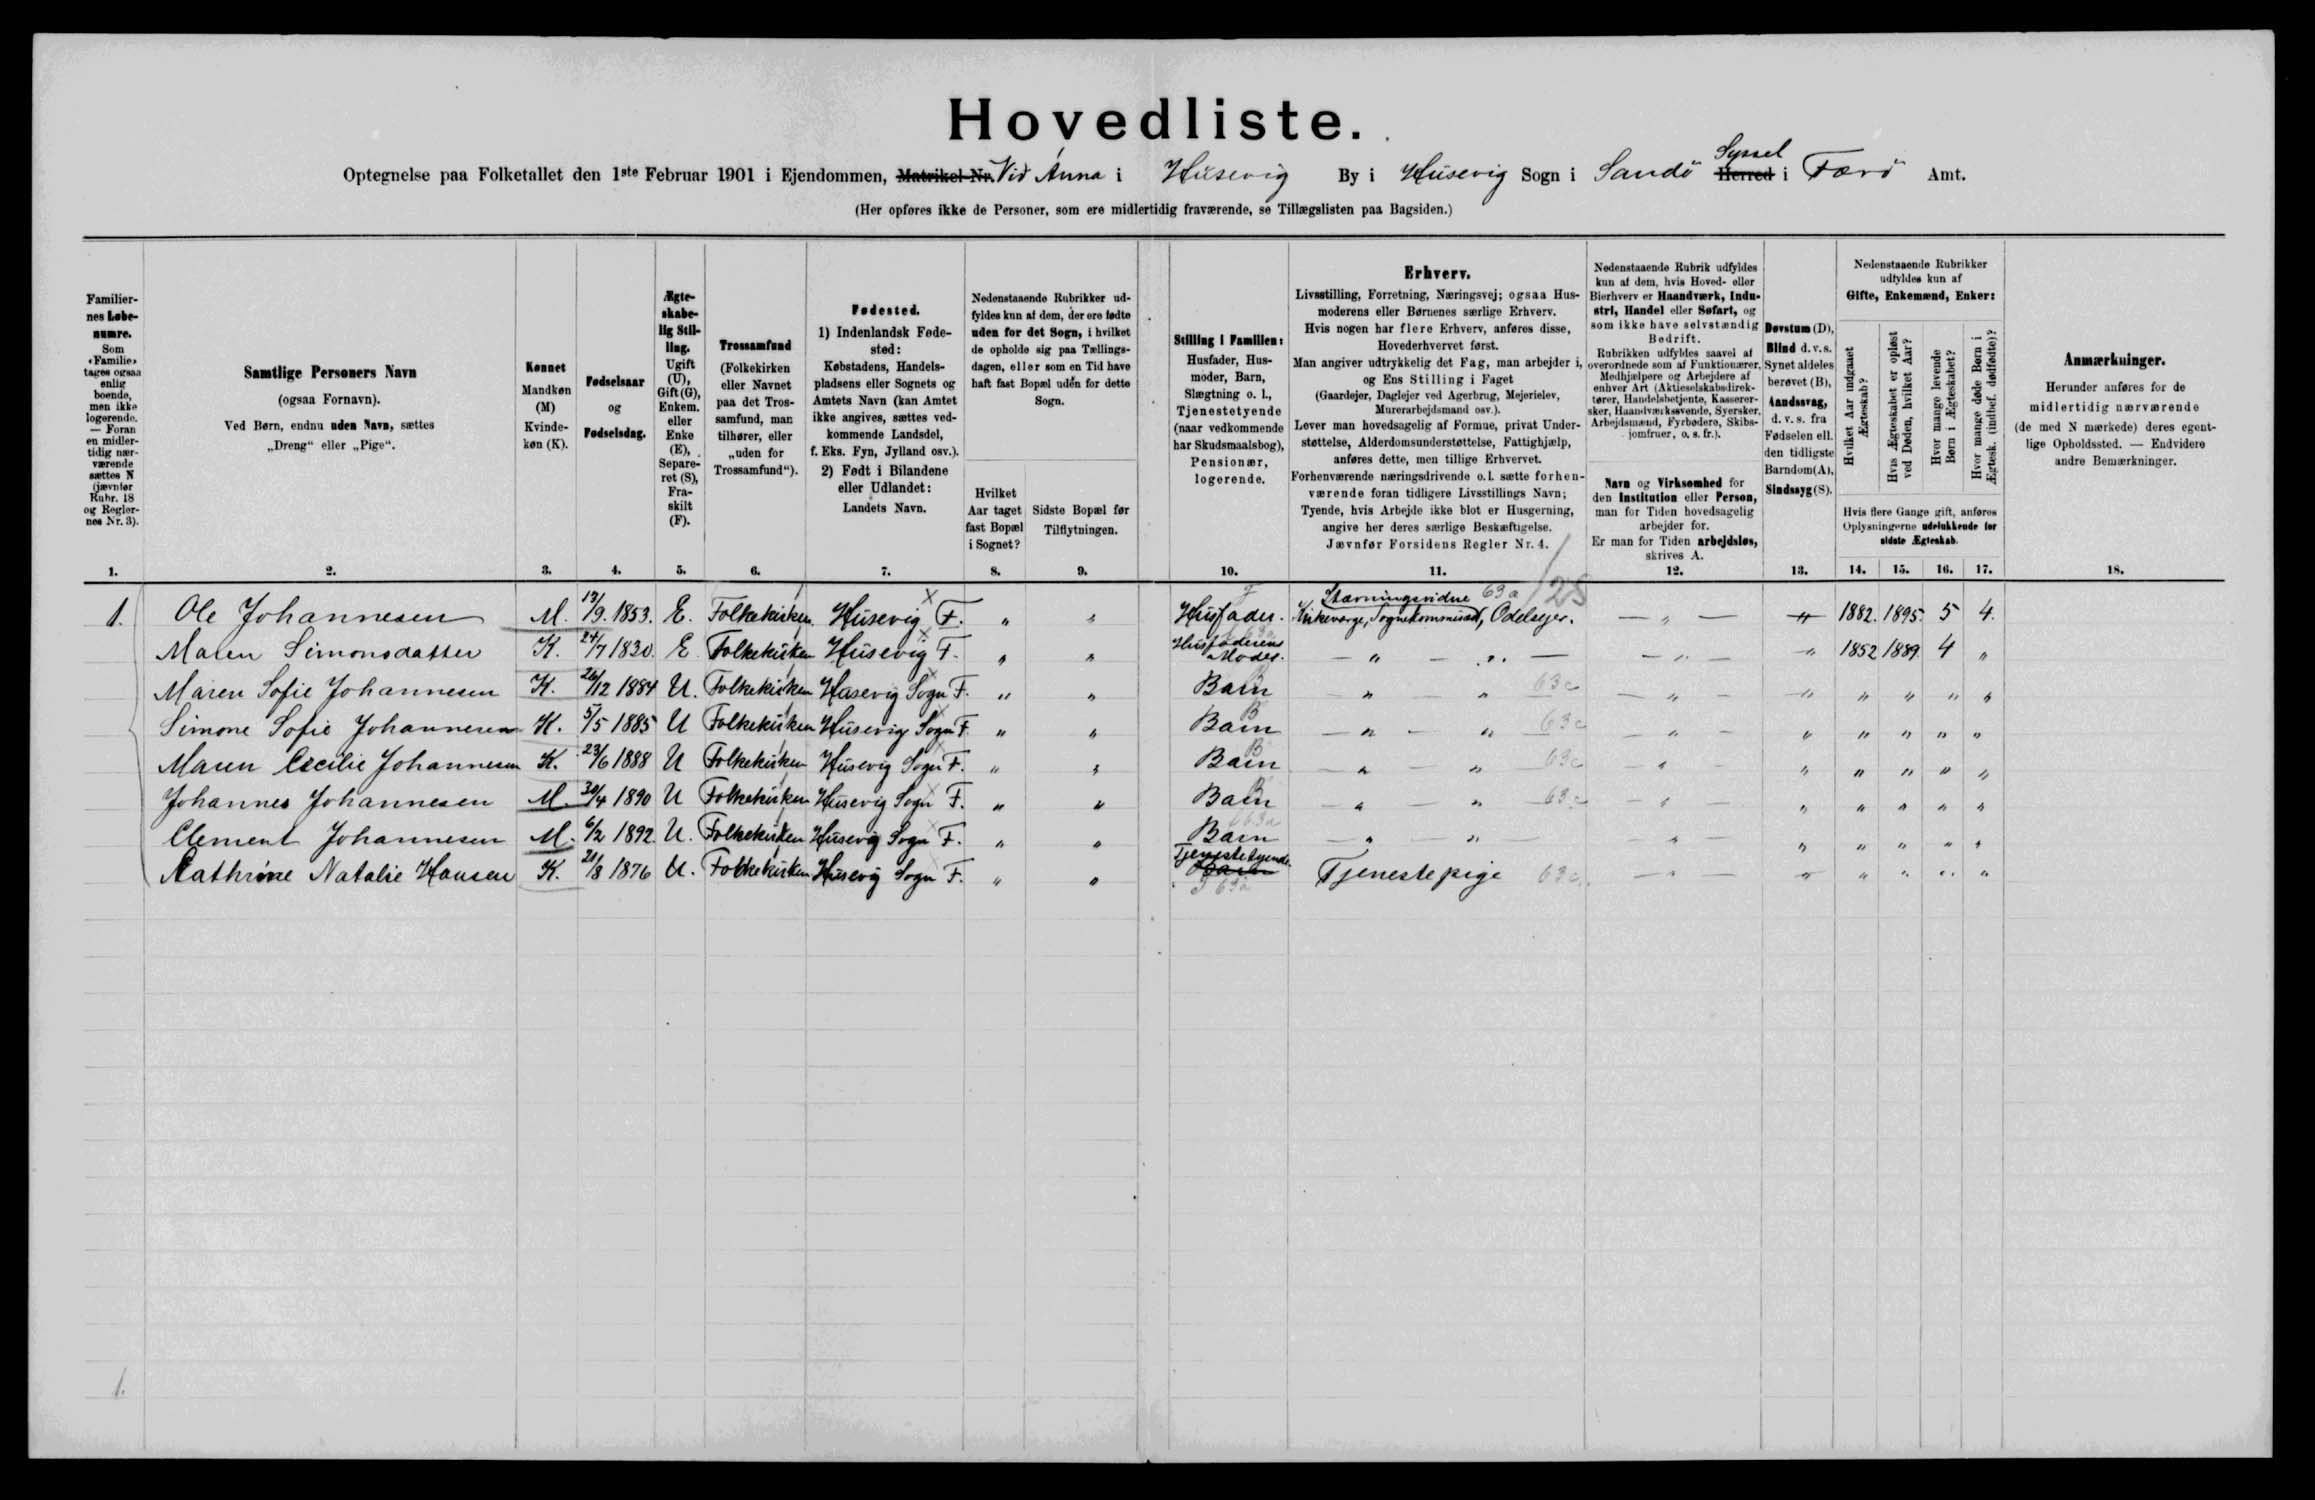 Hovedliste.
Optegnelse paa Folketallet den 1ste Februar 1901 i Ejendommen, Matrikel Nr. Vid Ánna i Húsevig By i Húsevig Sogn i Sandö Herred Syssel i Færö Amt.
(Her opføres ikke de Personer, som ere midlertidig fraværende, se Tillægslisten paa Bagsiden.)
Familiernes Løbenumre. Som «Familie» tages ogsaa enlig boende, men ikke logerende. — Foran en midlertidig nærværende sættes N (jævnfør Rubr. 18 og Reglernes Nr. 3).
Samtlige Personers Navn (ogsaa Fornavn). Ved Børn, endnu uden Navn, sættes „Dreng“ eller „Pige“.
Kønnet Mandkøn (M) Kvindekøn (K).
Fødselsaar og Fødselsdag.
Ægteskabelig Stilling. Ugift (U), Gift (G), Enkem. eller Enke (E), Separeret (S), Fraskilt (F).
Trossamfund (Folkekirken eller Navnet paa det Trossamfund, man tilhører, eller „uden for Trossamfund“).
Fødested. 1) Indenlandsk Fødested: Købstadens, Handelspladsens eller Sognets og Amtets Navn (kan Amtet ikke angives, sættes vedkommende Landsdel, f. Eks. Fyn, Jylland osv.). 2) Født i Bilandene eller Udlandet: Landets Navn.
Nedenstaaende Rubrikker udfyldes kun af dem, der ere fødte uden for det Sogn, i hvilket de opholde sig paa Tællingsdagen, eller som en Tid have haft fast Bopæl uden for dette Sogn.
Hvilket Aar taget fast Bopæl i Sognet?
Sidste Bopæl før Tilflytningen.
Stilling i Familien: Husfader, Husmoder, Barn, Slægtning o. l., Tjenestetyende (naar vedkommende har Skudsmaalsbog), Pensionær, logerende.
Erhverv.
Livsstilling, Forretning, Næringsvej; ogsaa Husmoderens eller Børnenes særlige Erhverv.
Hvis nogen har flere Erhverv, anføres disse, Hovederhvervet først.
Man angiver udtrykkelig det Fag, man arbejder i, og Ens Stilling i Faget (Gaardejer, Daglejer ved Agerbrug, Mejerielev, Murerarbejdsmand osv.).
Lever man hovedsagelig af Formue, privat Understøttelse, Alderdomsunderstøttelse, Fattighjælp, anføres dette, men tillige Erhvervet.
Forhenværende næringsdrivende o. l. sætte forhenværende foran tidligere Livsstillings Navn; Tyende, hvis Arbejde ikke blot er Husgerning, angive her deres særlige Beskæftigelse.
Jævnfør Forsidens Regler Nr. 4.
Nedenstaaende Rubrik udfyldes kun af dem, hvis Hoved- eller Bierhverv er Haandværk, Industri, Handel eller Søfart, og som ikke have selvstændig Bedrift.
Rubrikken udfyldes saavel af overordnede som af Funktionærer, Medhjælpere og Arbejdere af enhver Art (Aktieselskabsdirektører, Handelsbetjente, Kasserersker, Haandværkssvende, Syersker, Arbejdsmænd, Fyrbødere, Skibsjomfruer, o. s. fr.).
Navn og Virksomhed for den Institution eller Person, man for Tiden hovedsagelig arbejder for.
Er man for Tiden arbejdsløs, skrives A.
Døvstum (D), Blind d. v. s. Synet aldeles berøvet (B), Aandssvag, d. v. s. fra Fødselen ell. den tidligste Barndom (A), Sindssyg (S).
Nedenstaaende Rubrikker udfyldes kun af Gifte, Enkemænd, Enker:
Hvilket Aar indgaaet Ægteskab?
Hvis Ægteskabet er opløst ved Døden, hvilket Aar?
Hvor mange levende Børn i Ægteskabet?
Hvor mange døde Børn i Ægtesk. (indbef. dødfødte)?
Hvis flere Gange gift, anføres Oplysningerne udelukkende for sidste Ægteskab.
Anmærkninger.
Herunder anføres for de midlertidig nærværende (de med N mærkede) deres egentlige Opholdssted. — Endvidere andre Bemærkninger.
1. 2. 3. 4. 5. 6. 7. 8. 9. 10. 11. 12. 13. 14. 15. 16. 17. 18.
Stævningsvidne 63 a /25
1. Ole Johannesen M. 13/9. 1853. E. Folkekirken. Húsevig F. „ „ Husfader. Kirkeværge, Sognekommissær, Odelsejer. — „ — „ 1882. 1895. 5 4.
Maren Simonsdatter K. 24/7 1830. E. Folkekirken Húsevig F. „ „ Husfaderens Moder. — „ — „ — — „ — „ 1852 1889. 4 „
Maren Sofie Johannesen K. 26/12 1884 U. Folkekirken Husevig Sogn F. „ „ Barn — „ — „ 63 c — „ — „ „ „ „ „
Simone Sofie Johannesen K. 5/5 1885 U Folkekirken Húsevig Sogn F. „ „ Barn — „ — „ 63 c — „ — „ „ „ „ „
Maren Cecilie Johannesen K. 23/6 1888 U Folkekirken Húsevig Sogn F. „ „ Barn — „ — „ 63 c — „ — „ „ „ „ „
Johannes Johannesen M. 30/4 1890 U Folkekirken Húsevig Sogn F. „ „ Barn — „ — „ 63 c — „ — „ „ „ „ „
Clement Johannesen M. 6/2 1892. U. Folkekirken Húsevig Sogn F. „ „ Barn — „ — „ — „ — „ „ „ „ „
Kathrine Natalie Hansen K. 21/8 1876 U. Folkekirken Húsevig Sogn F. „ „ Tjenestetyende. Barn Tjenestepige 63 c. — „ — „ „ „ „ „
1.